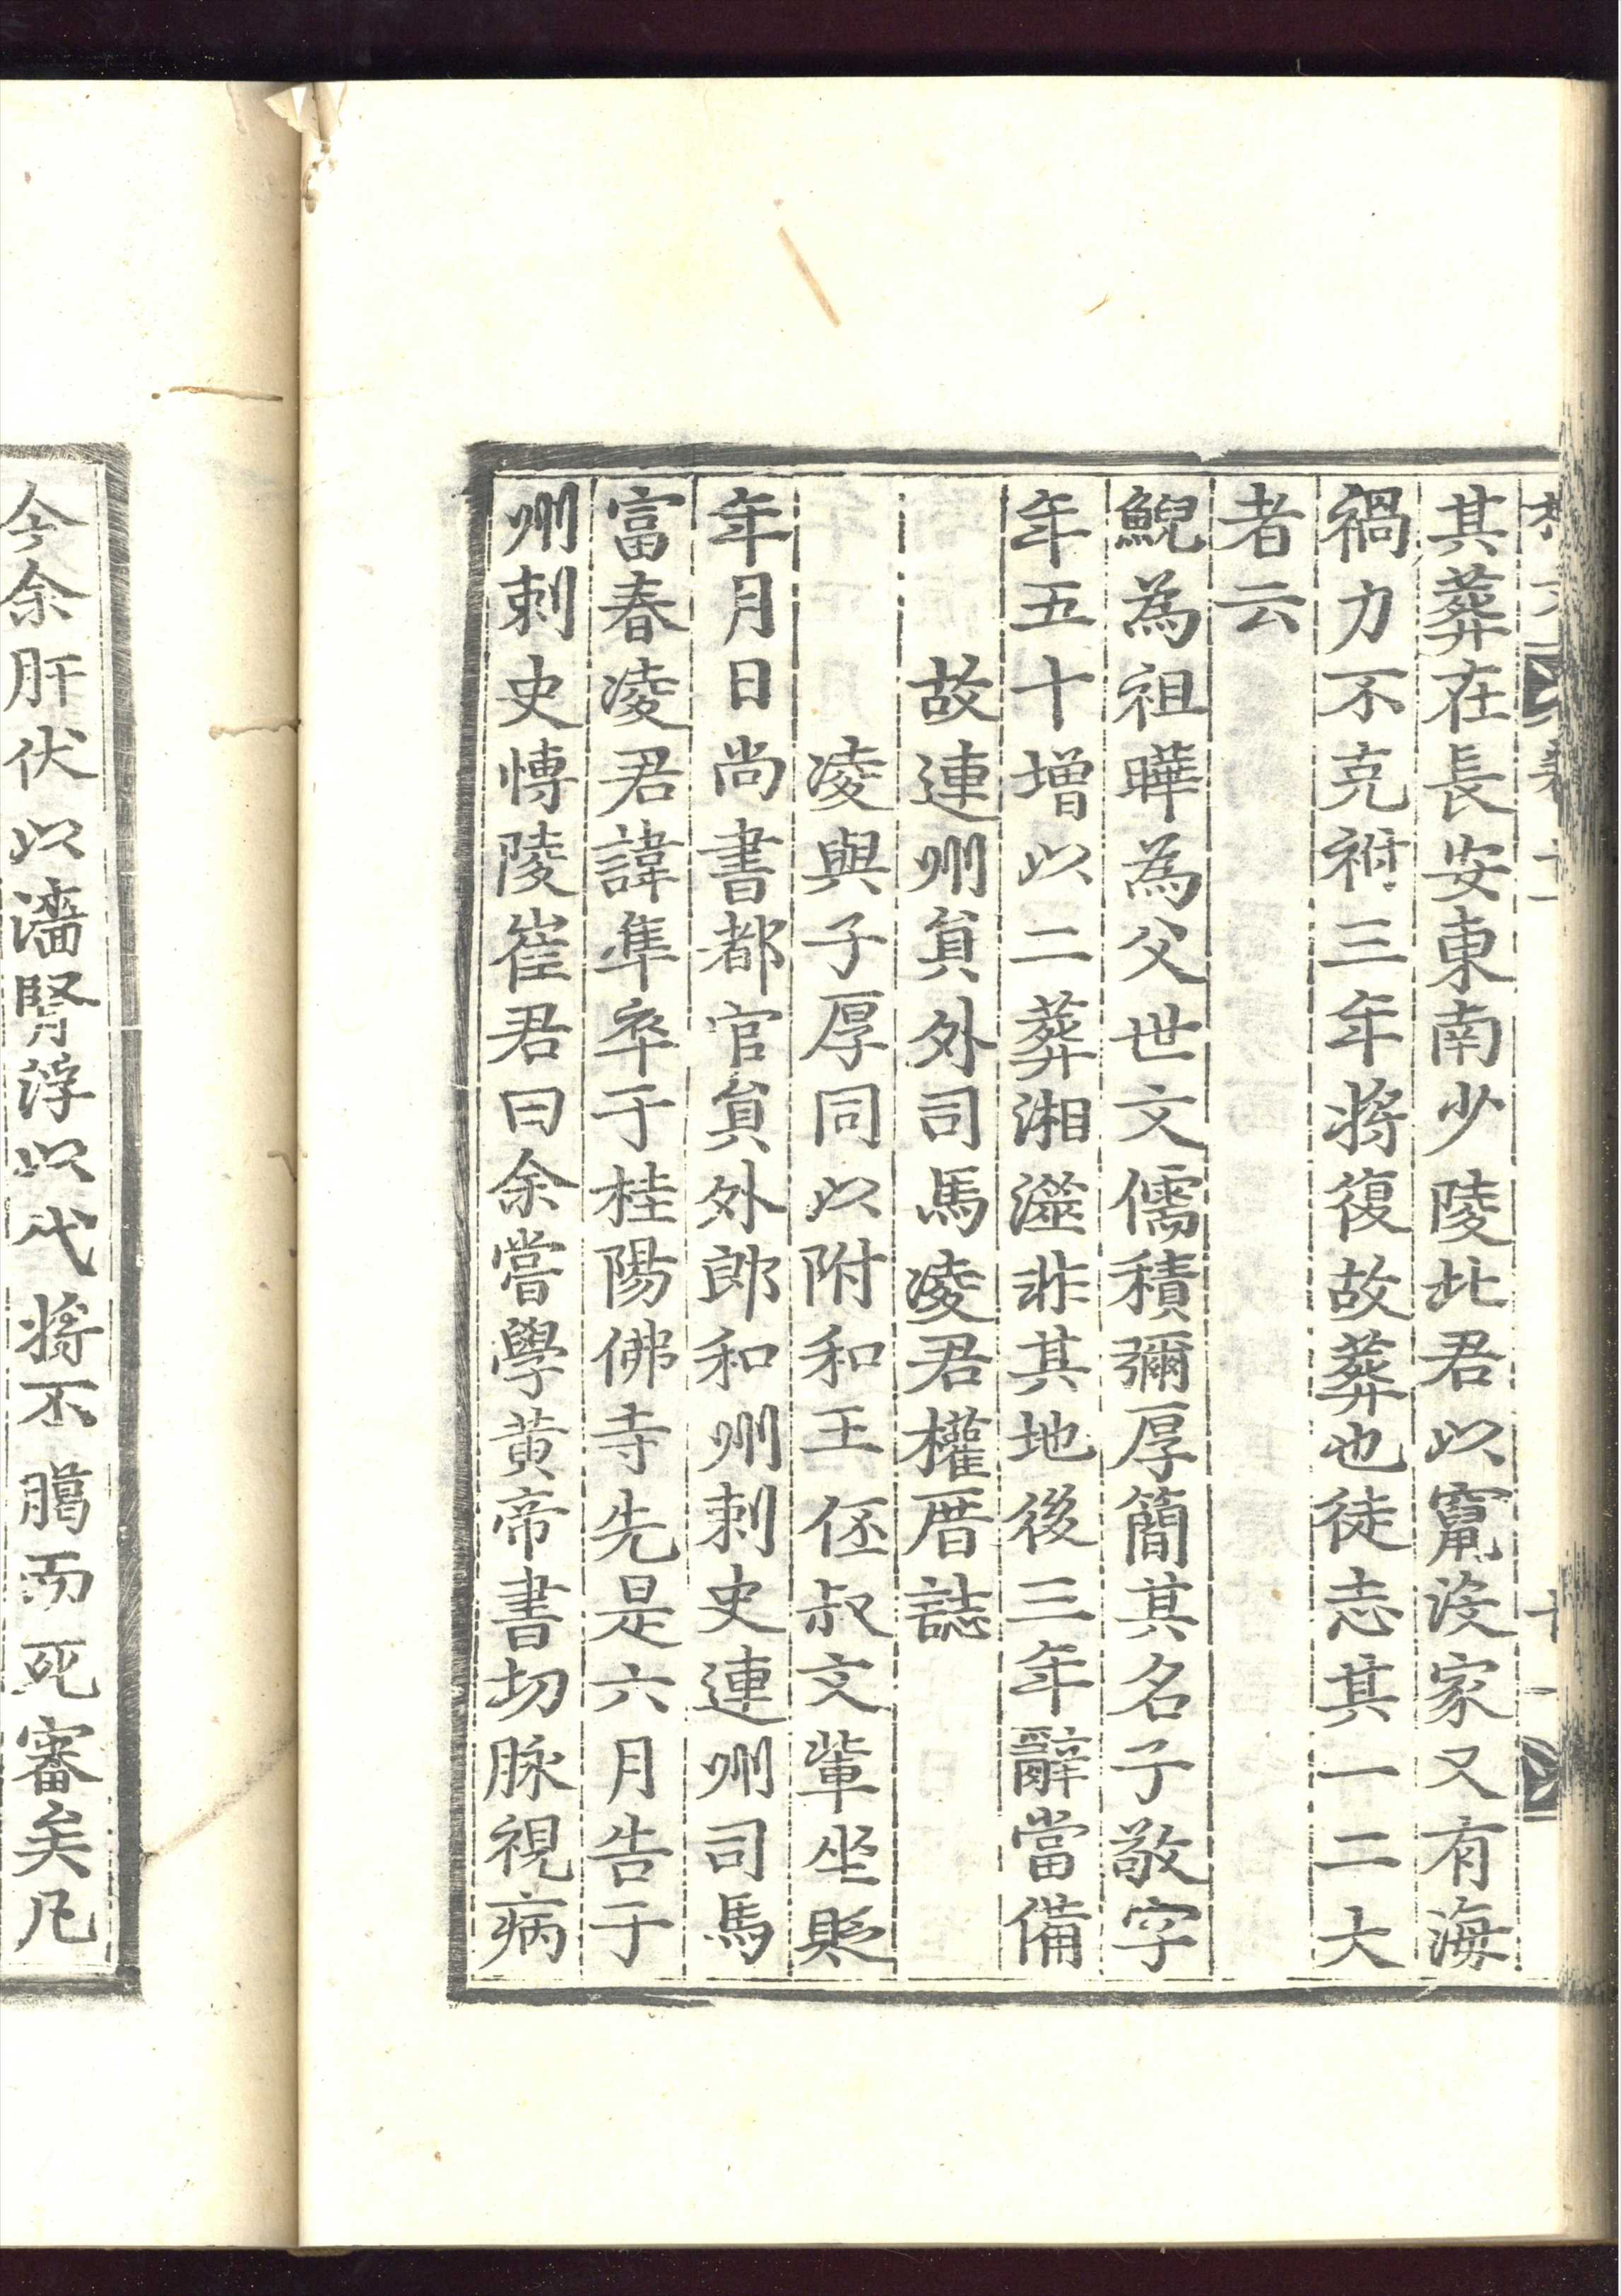 其葬在長安東南少陵北君以竄沒家又有海
禍力不克祔三年將復故葬也徒志其一二大
者云
鯢為祖曄為父世文儒積彌厚簡其名子敬字
年五十增以二葬湘澨非其地後三年辭當備
故連州負外司馬凌君權厝誌
凌與子厚同以附和王伾叔文輩坐貶
年月日尚書都官負外郎和州刺史連州司馬
富春凌君諱準卒于桂陽佛寺先是六月告于
州刺史博陵崔君曰余嘗學黃帝書切脉視病
今余肝伏以濇腎浮以代將不臈而死審矣凡